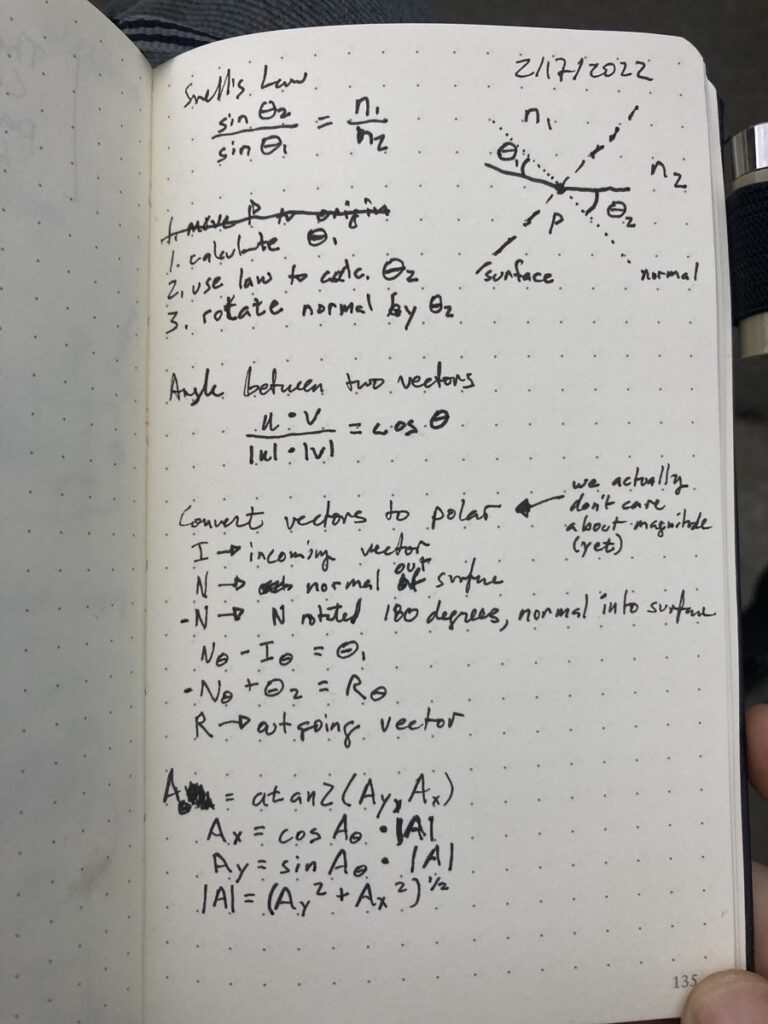 2/17/2022
Snell's Law
sin θ2 / sin θ1 = n1 / n2
n1
n2
θ1
θ2
P
surface
normal
1. move P to origin
1. calculate θ1
2. use law to calc. θ2
3. rotate normal by θ2
Angle between two vectors
u • v / |u| • |v| = cos θ
Convert vectors to polar ←
we actually
don't care
about magnitude
(yet)
I → incoming vector
N → normal out of surface
-N → N rotated 180 degrees, normal into surface
Nθ - Iθ = θ1
-Nθ + θ2 = Rθ
R → outgoing vector
Aθ = atan2(Ay, Ax)
Ax = cos Aθ • |A|
Ay = sin Aθ • |A|
|A| = (Ay² + Ax²)^1/2
135